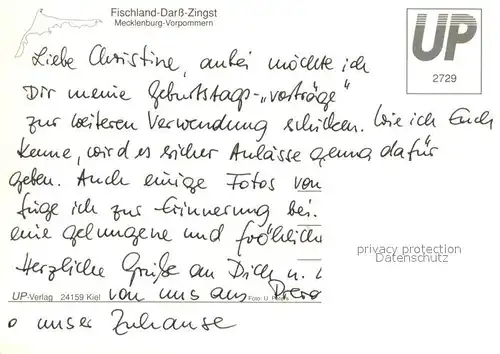 Fischland-Darß-Zingst
Mecklenburg-Vorpommern
UP
2729
Liebe Christine, anbei möchte ich
Dir meine Geburtstags-„vorträge"
zur weiteren Verwendung schicken. Wie ich Euch
kenne, wird es sicher Anlässe genug dafür
geben. Auch einige Fotos von
füge ich zur Erinnerung bei.
eine gelungene und fröhliche
privacy protection
Datenschutz
Herzliche Grüße an Dich u.
UP-Verlag 24159 Kiel
Foto: U.
von uns aus
unser Zuhause